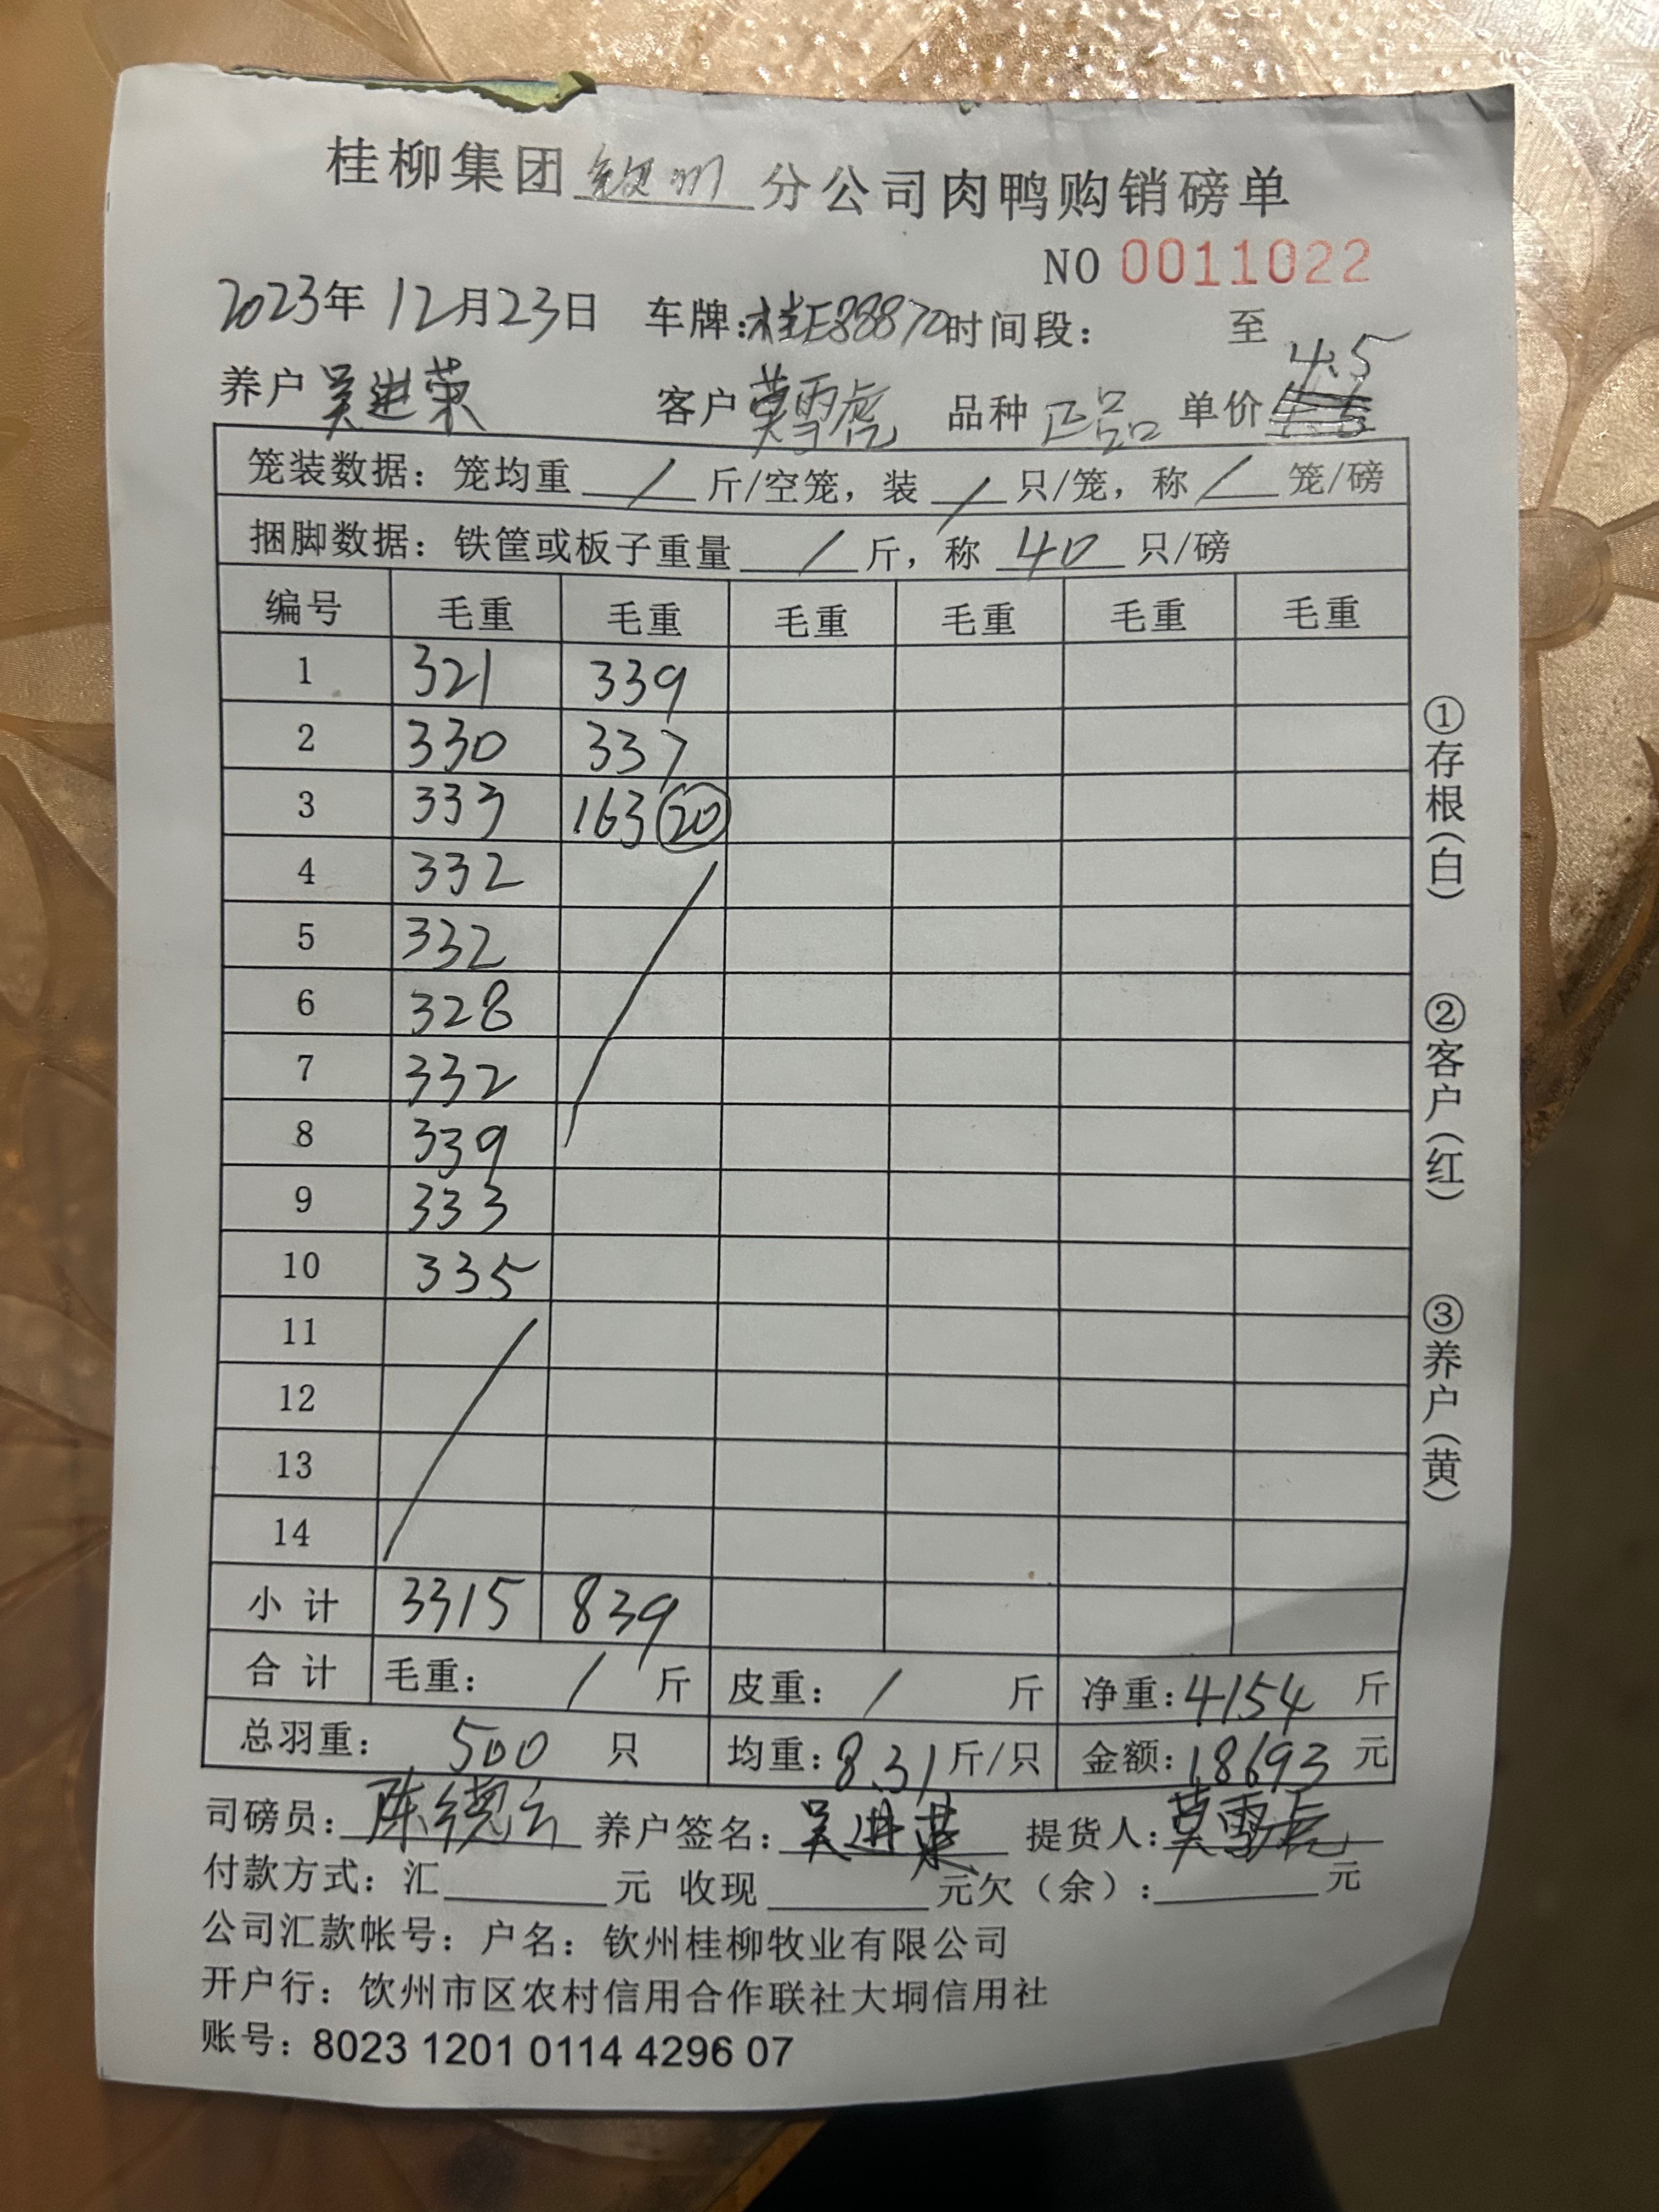 桂柳集团钦州分公司肉鸭购销磅单
NO 0011022
2023年12月23日 车牌:桂E88870时间段: 至
养户吴进荣 客户莫雪虎 品种 正品 单价 4.5
笼装数据: 笼均重 / 斤/空笼, 装 / 只/笼, 称 / 笼/磅
捆脚数据: 铁筐或板子重量 / 斤, 称 40 只/磅
编号 毛重 毛重 毛重 毛重 毛重 毛重
1 321 339
2 330 337
3 333 163 20
4 332
5 332
6 328
7 332
8 339
9 333
10 335
11
12
13
14
小计 3315 839
合计 毛重: / 斤 皮重: / 斤 净重:4154 斤
总羽重: 500 只 均重:8.31斤/只 金额:18693 元
司磅员:陈德云 养户签名:吴进荣 提货人:莫雪虎
付款方式: 汇 元 收现 元欠(余): 元
公司汇款帐号: 户名: 钦州桂柳牧业有限公司
开户行: 饮州市区农村信用合作联社大垌信用社
账号: 8023 1201 0114 4296 07
①存根(白) ②客户(红) ③养户(黄)